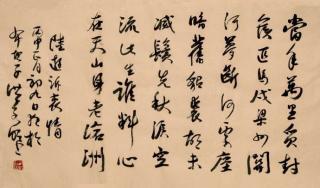 當年萬里覓封
侯匹馬戍梁州關
河夢斷何處塵
暗舊貂裘胡未
滅鬢先秋淚空
流此生誰料心
在天山身老滄洲
陸遊訴衷情
丙申正月初九日於